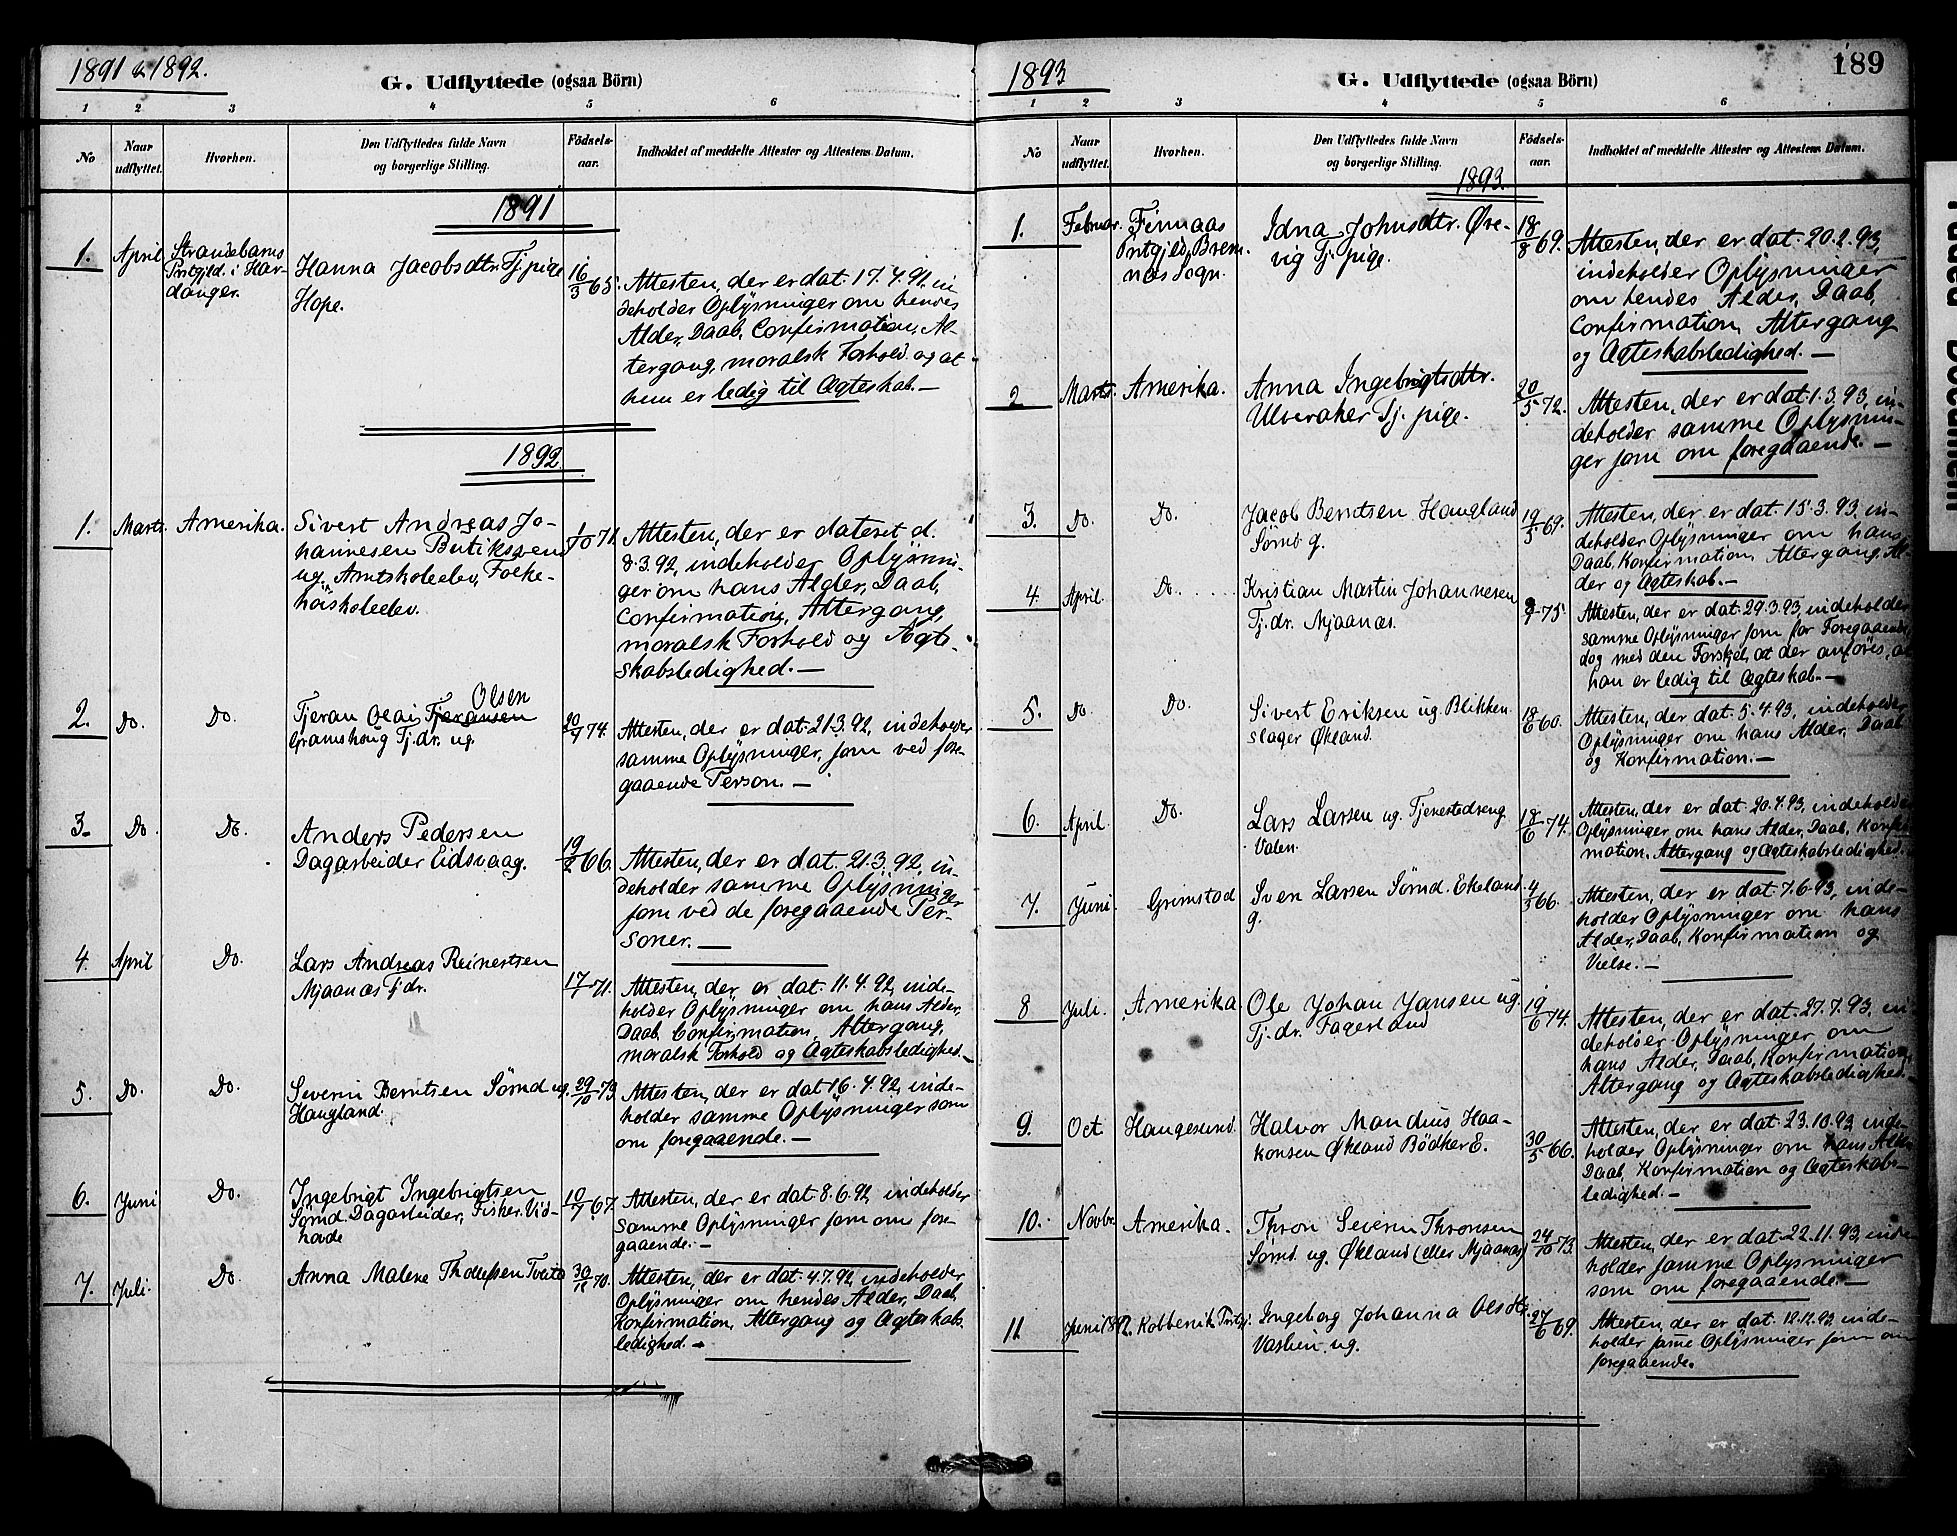 1891 & 1892.
G. Udflyttede (ogsaa Börn)
1 2 3 4 5 6
No
Naar udflyttet.
Hvorhen.
Den Udflyttedes fulde Navn
og borgerlige Stilling.
Födsels-
aar.
Indholdet af meddelte Attester og Attestens Datum.
1891
1.
April
Strandebarms
Prstgjld. i Har-
danger.
Hanna Jacobsdtr. Tj. pige
Hope.
16/3 65.
Attesten, der er dat. 17.4.91, in
deholder Oplysninger om hendes
Alder, Daab, Confirmation, Al-
tergang, moralsk Forhold og at
hun er ledig til Ægteskab. —
1892
1.
Marts.
Amerika.
Sivert Andreas Jo-
hannesen
ug. Amtskoleelev, Folke-
høiskoleelev.
1/10 71.
Attesten, der er dateret d.
8.3.92, indeholder Oplysnin-
ger om hans Alder, Daab,
Confirmation, Altergang,
moralsk Forhold og Ægte-
skabsledighed. —
2.
Do.
Do.
Olsen
Tjeran Olai Tjeransen
Gramshoug Tj. dr. ug.
20/1 74.
Attesten, der er dat. 21.3.92, indeholder
samme Oplysninger, som ved fore-
gaaende Person. —
3.
Do.
Do.
Anders Pedersen
Dagarbeider Eidsvaag.
19/2 66.
Attesten, der er dat. 21.3.92, in-
deholder samme Oplysninger
som ved de foregaaende Per-
soner. —
4.
April
Do.
Lars Andreas Reinertsen
Mjaanæs Tj. dr.
17/ 71.
Attesten, der er dat. 11.4.92, inde-
holder Oplysninger om hans Alder,
Daab, Confirmation, Altergang,
moralsk Forhold og Ægteskabsledighed. —
5.
Do.
Do.
Severin Berntsen Sømd ug.
Haugland.
29/10 73
Attesten, der er dat 16.4.92, inde-
holder samme Oplysninger som
om foregaaende. —
6.
Juni
Do.
Ingebrigt Ingebrigtsen
Sømd. Dagarbeider, Fisker. Vid-
hovde
10/7 67.
Attesten, der er dat 8.6.92, indeholder
samme Oplysninger som om fore-
gaaende. —
7.
Juli.
Do.
Anna Malene Thollefsen Tveita
30/12 70.
Attesten, der er dat. 4.7.92, indeholder
Oplysninger om hendes Alder, Daab,
Konfirmation, Altergang og Ægteskabs-
ledighed. —
1893
G. Udflyttede (ogsaa Börn)
189
1 2 3 4 5 6
No
Naar udflyttet.
Hvorhen.
Den Udflyttedes fulde Navn
og borgerlige Stilling.
Födsels-
aar.
Indholdet af meddelte Attester og Attestens Datum.
1893.
1.
Februar.
Finnaas
Prstgjeld, Brem-
næs Sogn.
Idna Johnsdtr. Øre-
vig Tj. pige.
18/8 69.
Attesten, der er dat. 20.2.93,
indeholder Oplysninger
om hendes Alder, Daab,
Confirmation, Altergang
og Ægteskabsledighed. —
2
Marts.
Amerika.
Anna Ingebrigtsdtr.
Ulveraker Tj. pige.
20/5 72.
Attesten, der er dat. 1.3.93, in-
deholder samme Oplysnin-
ger som om foregaaende. —
3.
Do.
Do.
Jacob Berntsen Haugland
Sømd g.
19/5 69.
Attesten, der er dat. 15.3.93, in-
deholder Oplysninger om hans
Daab, Konfirmation, Altergang, Al-
der og Ægteskab. —
4.
April.
Do.
Kristian Martin Johannesen
Tj. dr. Mjaanæs.
75.
Attesten, der er dat. 29.3.93, indeholder
samme Oplysninger som for Foregaaende,
dog med den Forskjel, at der anføres, at
han er ledig til Ægteskab. —
5.
Do.
Do.
Sivert Eriksen ug. Blikken-
slager Økland.
18/6 60.
Attesten, der er dat. 5.4.93, indeholder
Oplysninger om hans Alder, Daab
og Konfirmation. —
6.
April.
Do.
Lars Larsen ug. Tjenestedreng
Valen.
18/6 74.
Attesten, der er dat. 20.4.93, indeholder
Oplysninger om hans Alder, Daab, Konfir-
mation, Altergang og Ægteskabsledighed.
7.
Juni.
Grimstad
Sven Larsen Sømd. Ekeland
g.
4/3 66.
Attesten, der er dat. 7.6.93, inde-
holder Oplysninger om hans
Alder, Daab, Konfirmation og
Vielse. —
8
Juli.
Amerika.
Ole Johan Jansen ug.
Tj. dr. Fagerland
19/6 74.
Attesten, der er dat. 27.7.93, in
deholder Oplysninger om
hans Alder, Daab, Konfirmation,
Altergang og Ægteskabsledighed. —
9.
Oct.
Haugesund.
Halvor Mandius Haa-
konsen Økland Bødker E.
30/5 66.
Attesten, der er dat 23.10.93, inde-
holder Oplysninger om hans Alder
Daab, Konfirmation og Ægteskabs-
ledighed. —
10.
Novbr.
Amerika.
Thron Severin Thronsen
Sømd. ug. Økland (eller Mjaanæs)
24/10 73.
Attesten, der er dat 22.11.93, inde
holder samme Oplysninger
som om foregaaende. —
11
Juni 1892.
Ingeborg Johanna Olsdtr.
ug.
27/6 69.
Attesten, der er dat. 12.12.93, inde-
holder same Oplysninger som om
foregaaende.